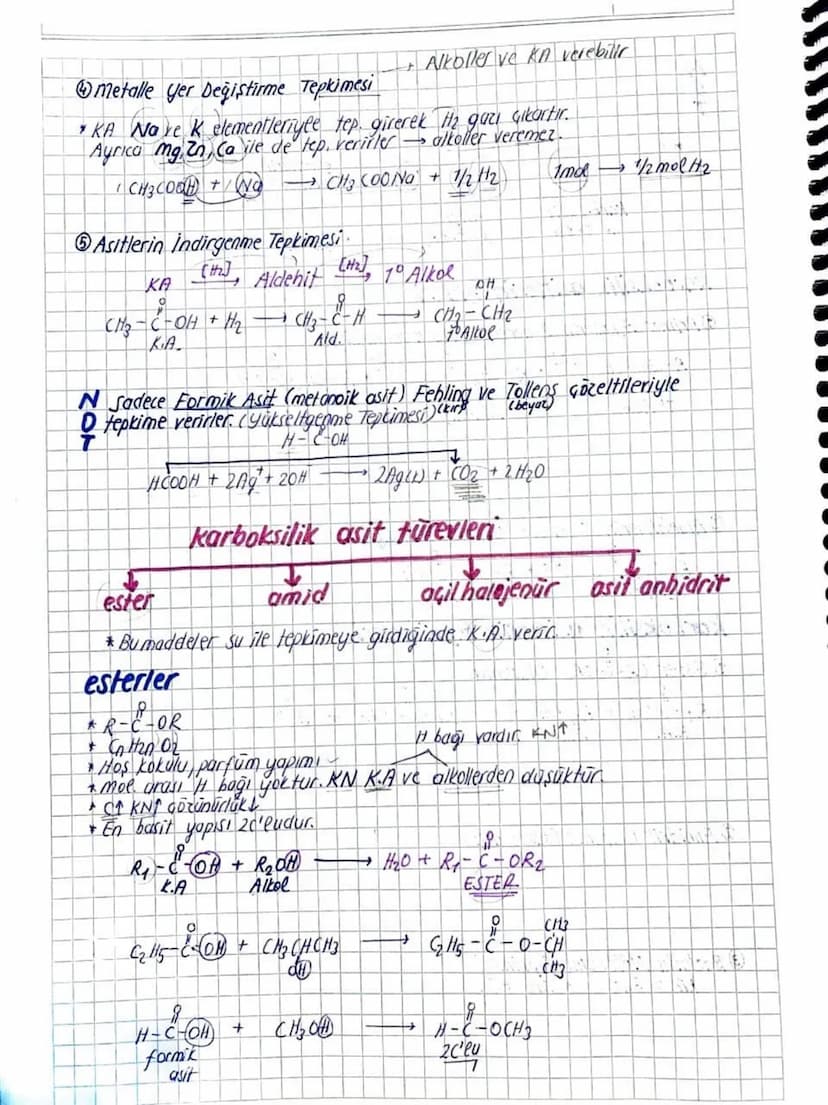 → Alkoller ve KA verebilir
④ Metalle Yer Değiştirme Tepkimesi
* KA Na ve K elementleriyle tep. girerek H2 gazı çıkartır.
Ayrıca Mg, Zn, Ca ile de tep. verirler → alkoller veremez.
CH3COOH + Na → CH3COONa + 1/2 H2    1mol → 1/2 mol H2
⑤ Asitlerin İndirgenme Tepkimesi
KA [H2]→ Aldehit [H2]→ 1° Alkol
O    O    OH
CH3-C-OH + H2 → CH3-C-H → CH2-CH2
K.A.    Ald.    1° Alkol
NOT Sadece Formik Asit (metanoik asit) Fehling ve Tollens çözeltileriyle
tepkime verirler. (Yükseltgenme Tepkimesi) (kır) (beyaz)
H-C-OH
HCOOH + 2Ag+ + 2OH → 2Ag(k) + CO2 + 2H2O
karboksilik asit türevleri
ester    amid    açil halojenür    asit anhidrit
* Bu maddeler su ile tepkimeye girdiğinde K.A. verir.
esterler
O
* R-C-OR
* CnH2nO2    H bağı vardır. KN↑
* Hoş kokulu, parfüm yapımı
* mol arası H bağı yoktur. KN K.A ve alkollerden düşüktür.
* C↑ KN↑ çözünürlük↓
* En basit yapısı 2C'eudur.
O    O
R1-C-OH + R2OH → H2O + R1-C-OR2
K.A    Alkol    ESTER
O    O    CH3
C2H5-C-OH + CH3CHCH3 → C2H5-C-O-CH
OH    CH3
O    O
H-C-OH + CH3OH → H-C-OCH3
formik    2C'eu
asit